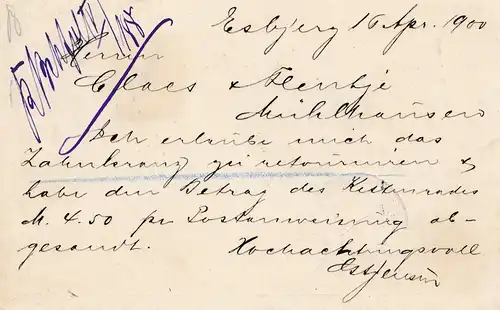 Esbjerg 16 Apr. 1900
Herrn
Claes & Flentje
Mühlhausen
Ich erlaube mich das
Zahnkranz zu retournieren &
habe den Betrag des Kettenrades
M. 4.50 pr Postanweisung ab-
gesandt. Hochachtungsvoll